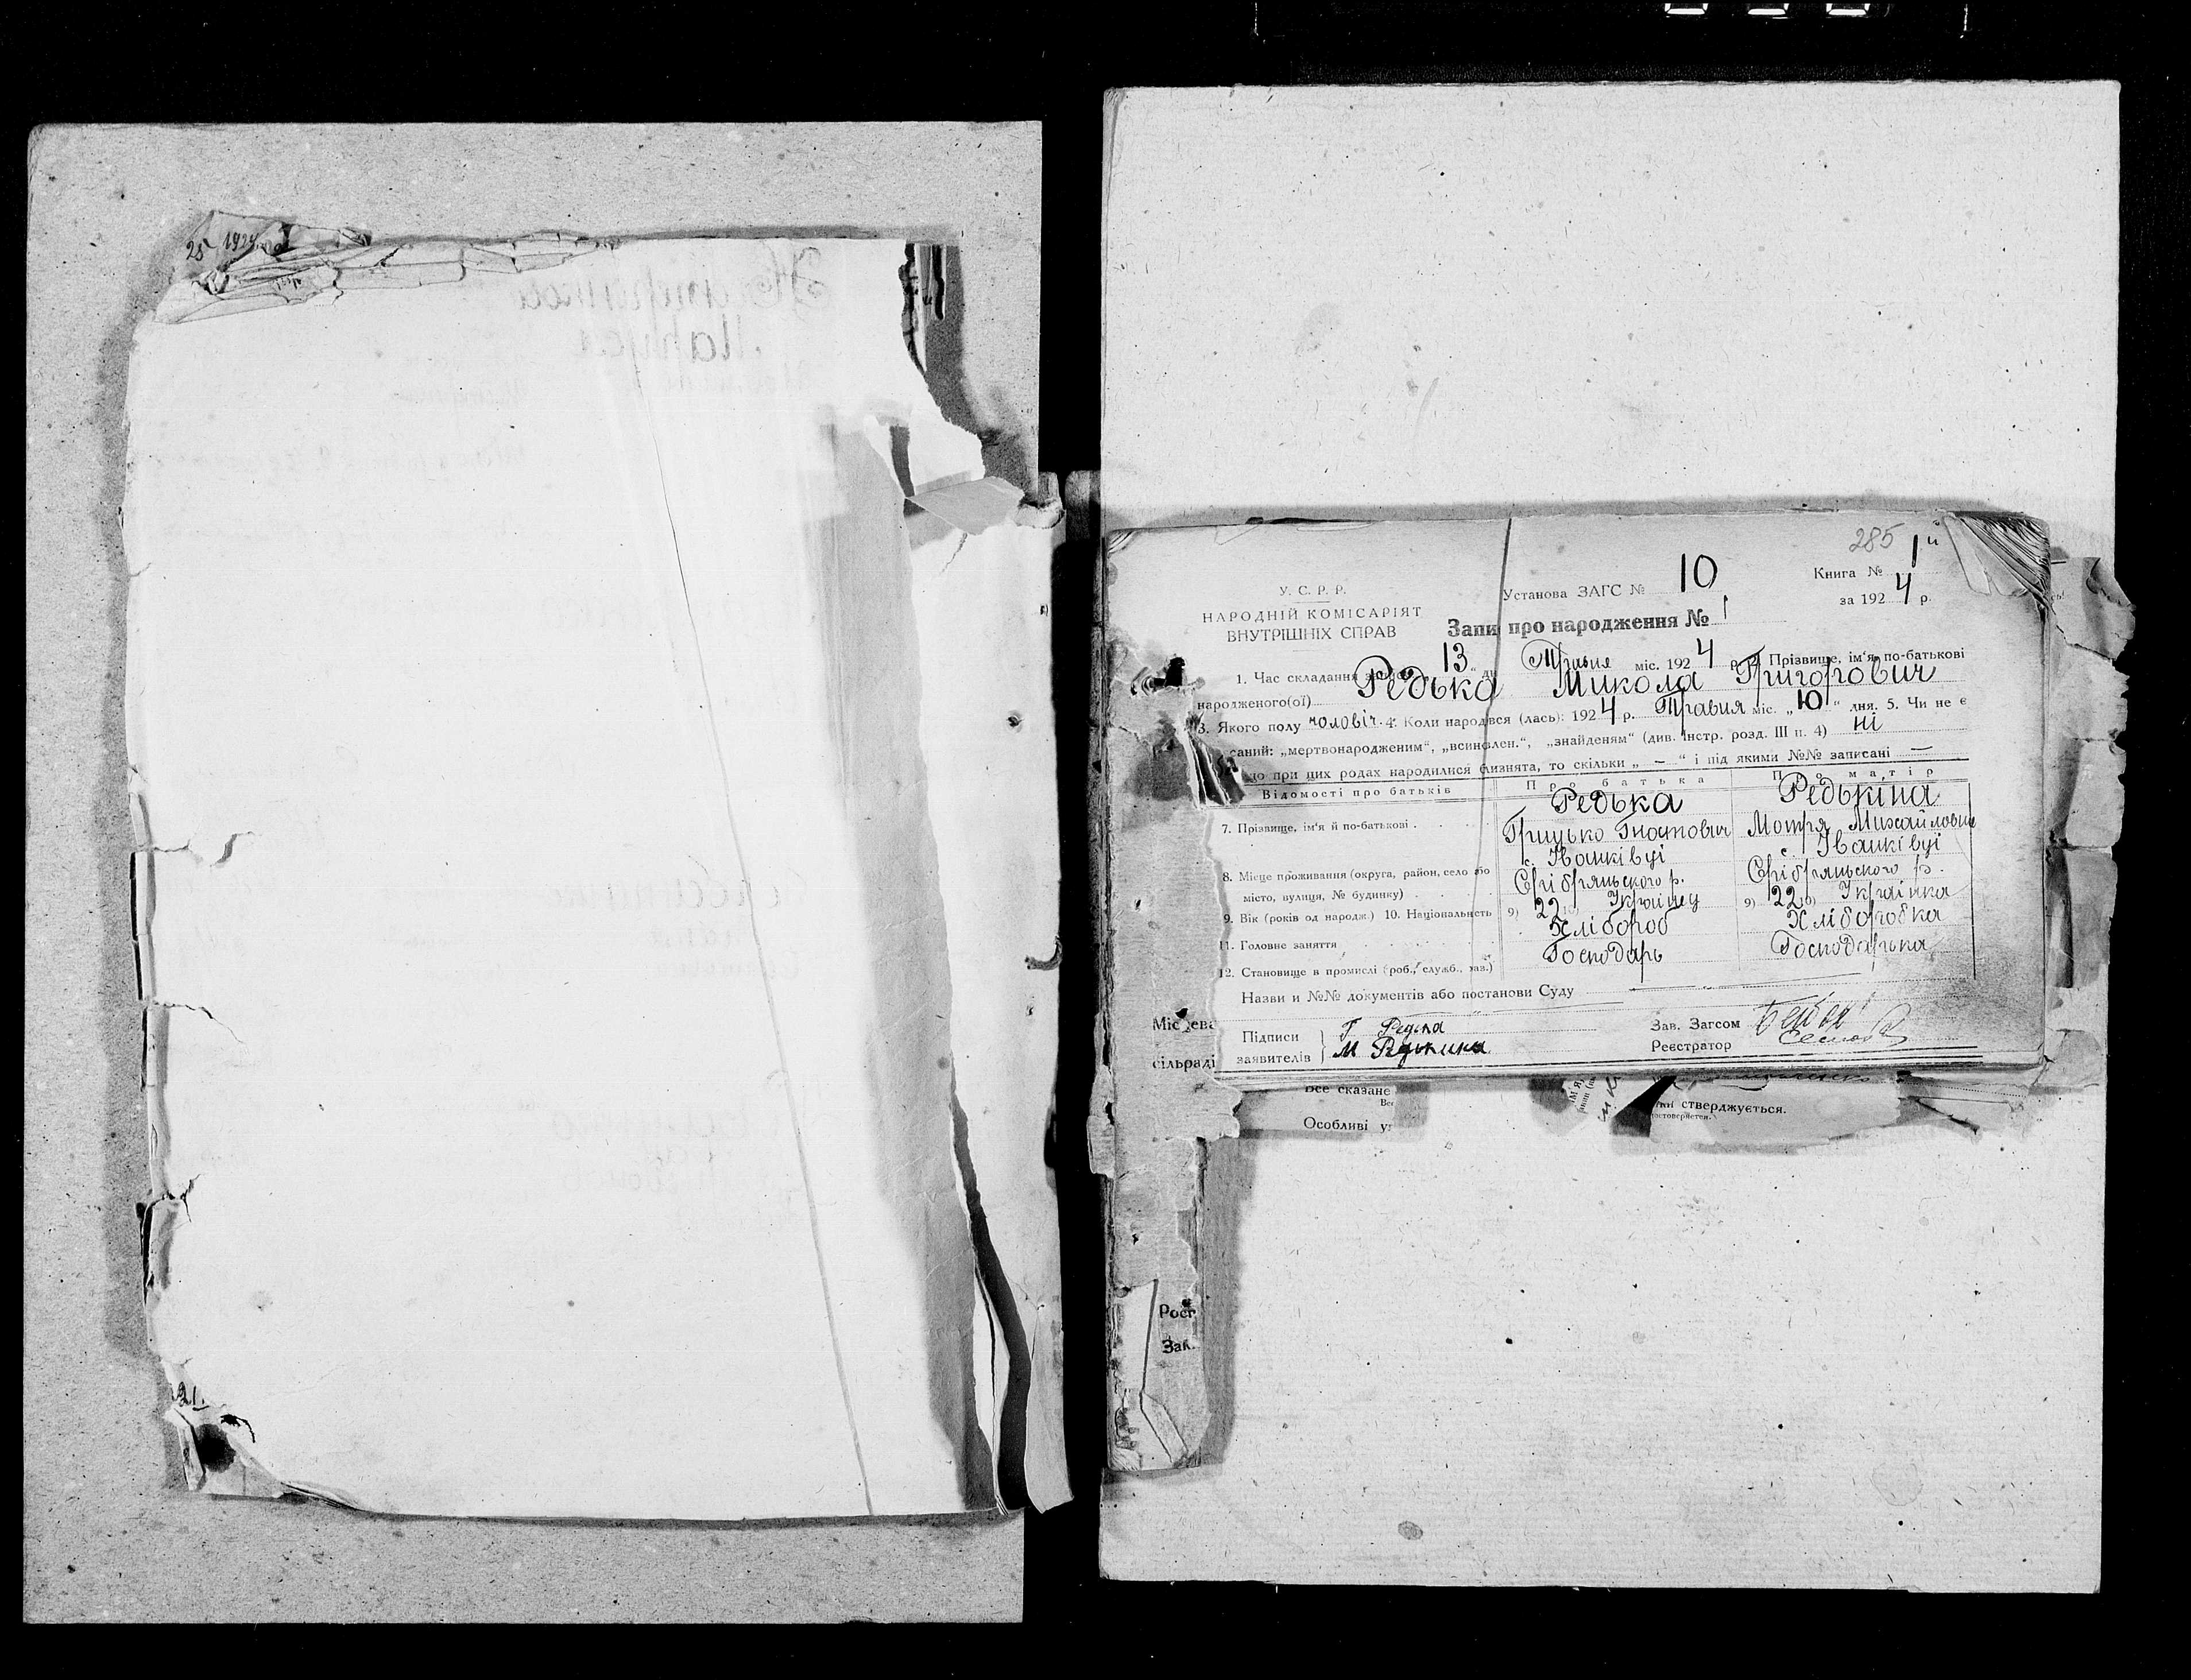 25 1924
21.
285
У. С. Р. Р.
НАРОДНІЙ КОМІСАРІЯТ
ВНУТРІШНІХ СПРАВ
Установа ЗАГС № 10
Книга № 1й
за 1924 р.
Запис про народження № 1
1. Час складання „13“ дн Травня міс. 1924 р. 2. Прізвище, ім'я, по-батькові
народженого(ої) Редька Микола Григорович
3. Якого полу чоловіч. 4. Коли народився (лась): 1924 р. Травня міс. „10“ дня. 5. Чи не є
саний: „мертвонародженим“, „всиновлен.“, „знайденям“ (див. інстр. розд. III п. 4) ні
що при цих родах народилися близнята, то скільки „ — “ і під якими №№ записані —
Відомості про батьків Про батька Про матір
7. Прізвище, ім'я й по-батькові Редька Редькіна
Грицько Гнатович Мотря Михайловна
с. Іванківці с. Іванківці
8. Місце проживання (округа, район, село або Срібрянського р. Срібрянського р.
місто, вулиця, № будинку)
9. Вік (років од народж.) 10. Національність 9) 22 10) Українец 9) 22 10) Українка
11. Головне заняття Хлібороб Хліборобка
12. Становище в промислі (роб., служб., хаз.) Господарь Господарька
Назви и №№ документів або постанови Суду
Підписи
заявителів
Г Редька
М Редькина
Зав. Загсом
Реєстратор
Місцева
сільраді
Все сказане
Особливі
стверджується.
Зак.